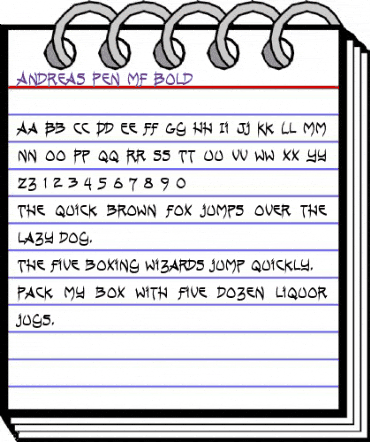 ANDREAS PEN MF BOLD
AA BB CC DD EE FF GG HH II JJ KK LL MM
NN OO PP QQ RR SS TT UU VV WW XX YY
ZZ 1 2 3 4 5 6 7 8 9 0
THE QUICK BROWN FOX JUMPS OVER THE
LAZY DOG.
THE FIVE BOXING WIZARDS JUMP QUICKLY.
PACK MY BOX WITH FIVE DOZEN LIQUOR
JUGS.